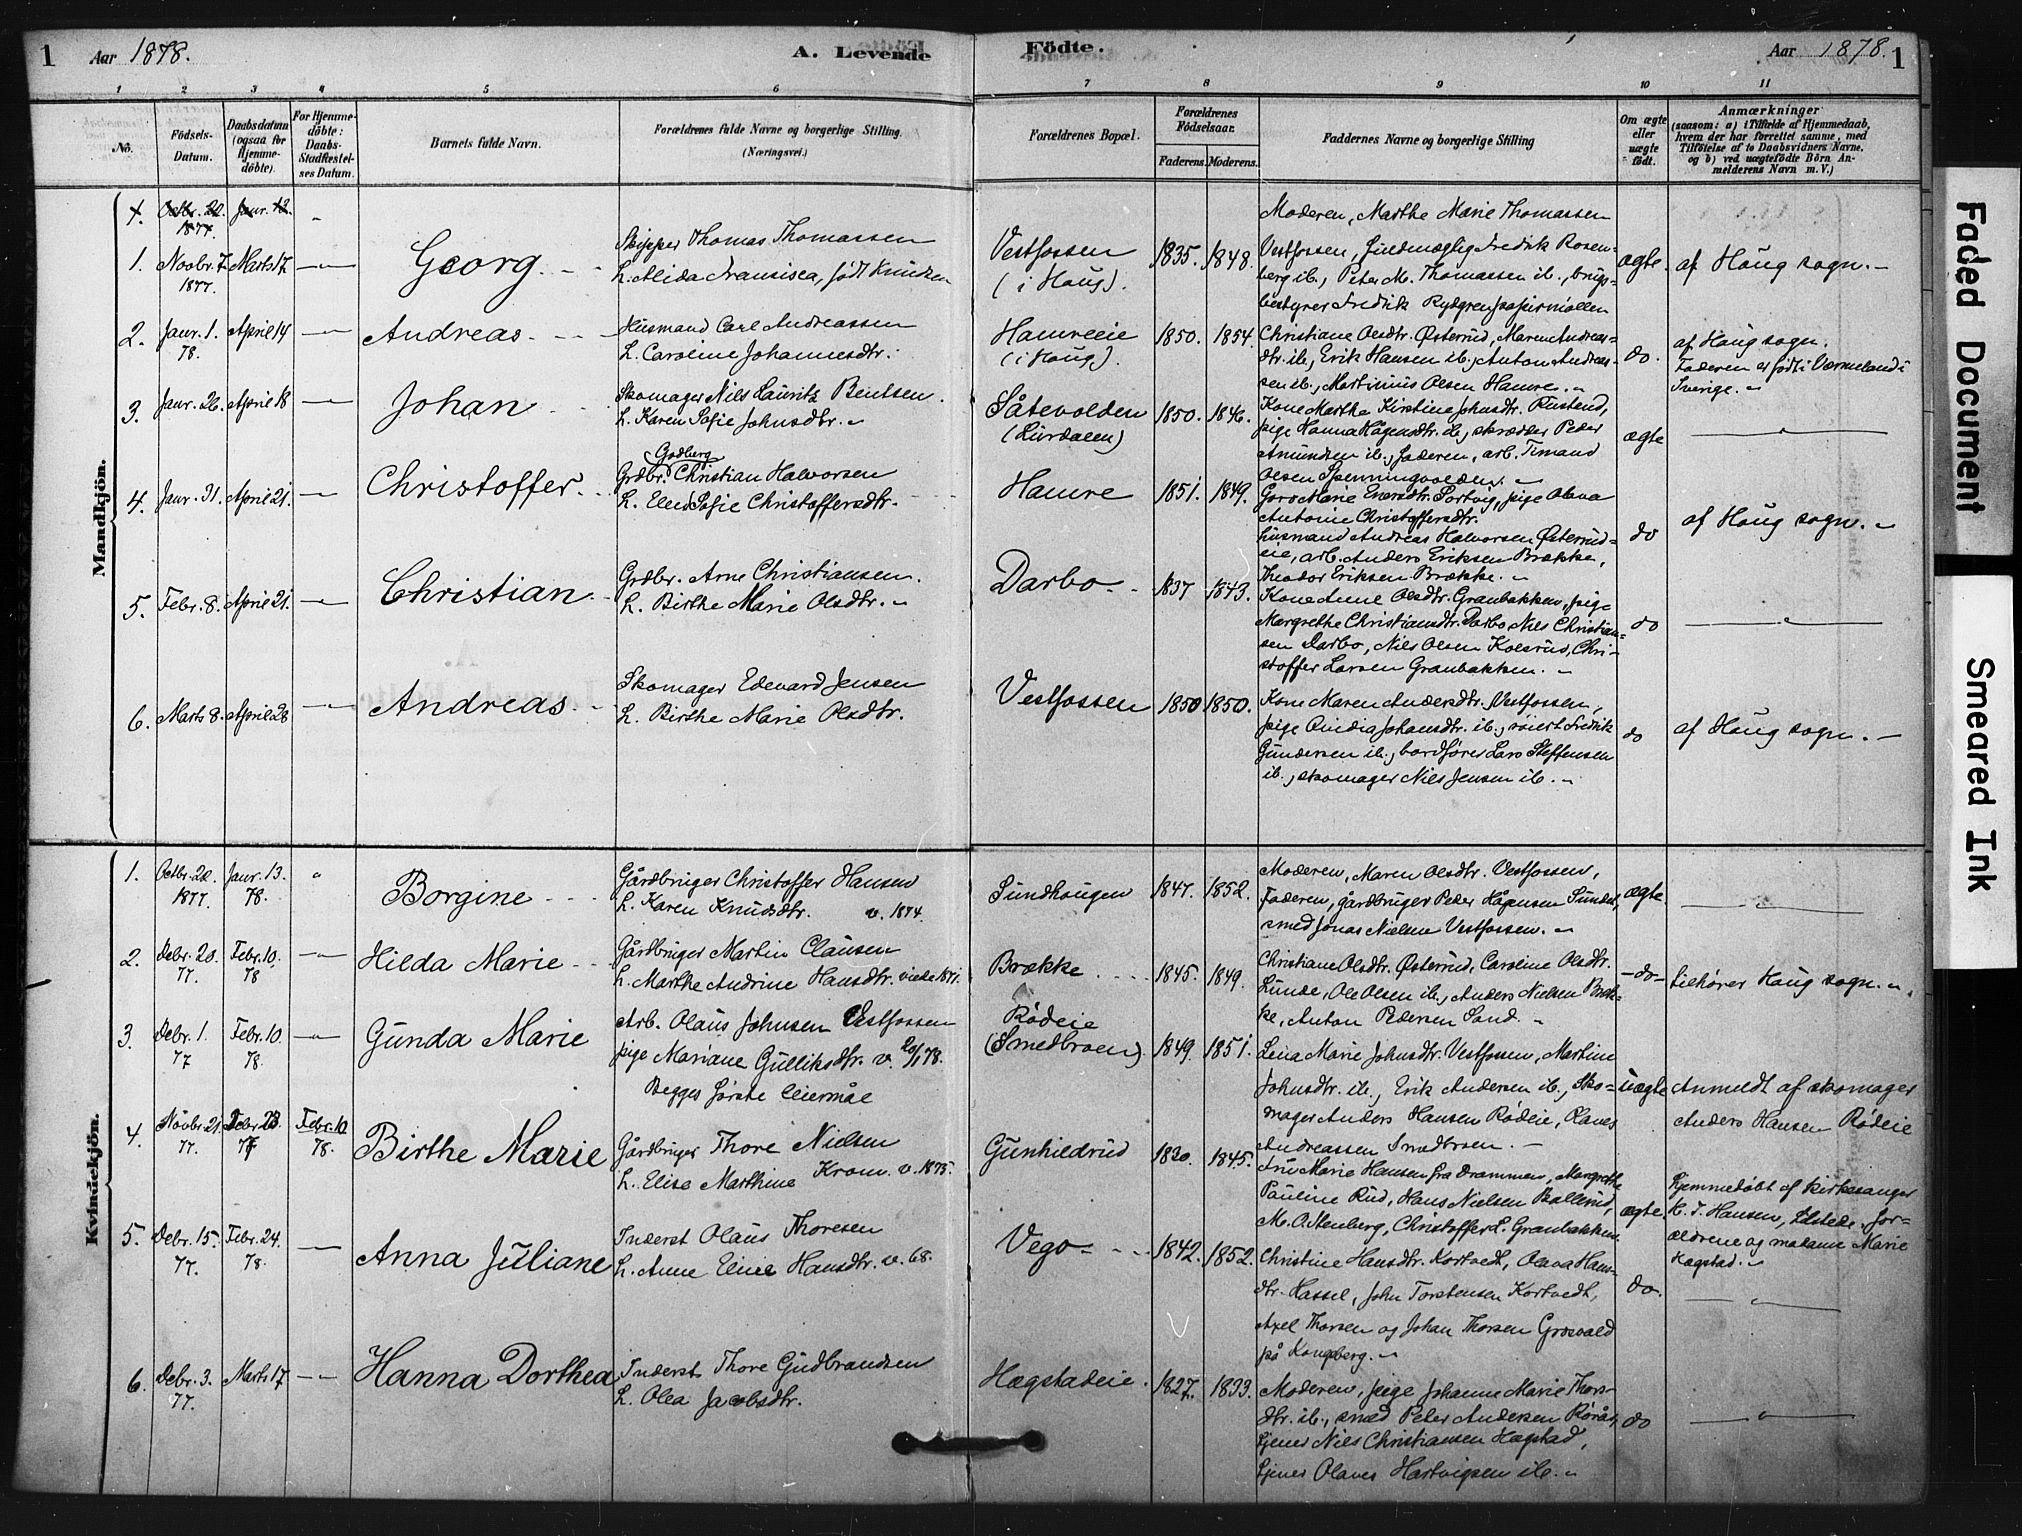 1 Aar 1878. A. Levende Födte. Aar 1878. 1
1 2 3 4 5 6 7 8 9 10 11
No.
Födsels-
Datum.
Daabsdatum
(ogsaa for
Hjemme-
döbte).
For Hjemme-
döbte:
Daabs-
Stadfæstel-
ses Datum.
Barnets fulde Navn.
Forældrenes fulde Navne og borgerlige Stilling.
(Næringsvei.)
Forældrenes Bopæl.
Forældrenes
Födselsaar.
Faderens. Moderens.
Faddernes Navne og borgerlige Stilling
Om ægte
eller
uægte
födt.
Anmærkninger
(saasom: a) i Tilfælde af Hjemmedaab,
hvem der har forrettet samme, med
Tilföielse af to Daabsvidners Navne,
og b) ved uægtefödte Börn An-
melderens Navn m. V.)
Mandkjön.
Octbr. 22.
1877.
Janr. 13.
Moderen, Marthe Marie Thomassen
1. Novbr. 7.
1877.
Marts 17.
Georg.
Skipper Thomas Thomassen
h. Alida Fransisca, født Knudsen
Vestfossen
(i Houg).
1835. 1848.
Vestfossen, fuldmægtig Fredrik Rosen-
berg ib., Peter M. Thomassen ib., brugs-
bestyrer Fredrik Rydgren papirmøllen
ægte.
af Houg sogn.
2. Janr. 1.
78.
April 14
Andreas
Husmand Carl Andreassen
h. Caroline Johannesdtr.
Hamreeie
(i Houg).
1850. 1854.
Christiane Olsdtr. Østerud, Maren Andreas-
dtr. ib., Erik Hansen ib., Anton Andreas-
sen ib., Martinius Olsen Hamre.
do.
af Houg sogn.
Faderen er født i Værmeland i
Sverige.
3. Janr. 26. April 18
Johan
Skomager Nils Lauritz Bentsen.
h. Karen Sofie Johnsdtr.
Såtevolden
(Lurdalen)
1850. 1846.
Kone Marthe Kirstine Johnsdtr. Rustend,
pige Hanna Hågensdtr. ib., skrædder Peder
Amundsen ib., faderen, arb. Timand
Olsen Spenningvolden.
ægte
4. Janr. 31. April 21.
Christoffer.
Godberg
Grdbr. Christian Halvorsen
h. Ellen Sofie Christoffersdtr.
Hamre
1851. 1849.
Goro Marie Enersdtr. Portvig, pige Olava
Antonie Christoffersdtr.
husmand Andreas Halvorsen Østerud-
eie, arb. Anders Eriksen Brække,
Theodor Eriksen Brække.
do
af Houg sogn.
5. Febr. 8. April 21.
Christian
Grdbr. Arne Christiansen.
h. Birthe Marie Olsdtr.
Darbo
1837 1843.
Kone Anne Olsdtr. Granbakken, pige
Margrethe Christiansdtr. Darbo, Nils Christian-
sen Darbo, Nils Olsen Kolsrud, Chri-
stoffer Larsen Granbakken.
do
6. Marts 8. April 28
Andreas
Skomager Edevard Jensen
h. Birthe Marie Olsdtr.
Vestfossen
1850 1850.
Kone Maren Andersdtr. Vestfossen,
pige Johansdtr. ib., Fredrik
Gundersen ib., bordfører Lars Steffensen
ib., skomager Nils Jensen ib.
do
af Houg sogn.
Kvindekjön.
1. Octbr. 22.
1877.
Janr. 13.
78.
Borgine
Gårdbruger Christoffer Hansen
h. Karen Knudsdtr. v. 1874.
Sundhougen
1847. 1852.
Moderen, Maren Olsdtr. Vestfossen,
Faderen, gårdbruger Peder Håg​ensen Sundet,
smed Jonas Nielsen Vestfossen.
ægte
2. Debr. 20.
77
Febr. 10.
78
Hilda Marie
Gårdbruger Martin Clausen
h. Marthe Andrine Hansdtr. viede 1871.
Brække
1845. 1849.
Christiane Olsdtr. Østerud, Caroline Olsdtr.
Lunde, Ole Olsen ib., Anders Nielsen Bræk-
ke, Anton Pedersen Sand.
do
tilhører Houg sogn.
3. Debr. 1.
77
Febr. 10.
78.
Gunda Marie
Arb. Olaus Johnsen Vestfossen
pige Mariane Gulliksdtr. v. 20/1 78.
Begges første leiermål
Rødeie
(Smedbroen)
1849. 1851.
Lena Marie Johnsdtr. Vestfossen, Martine
Johnsdtr. ib., Erik Andersen ib., Sko-
mager Anders Hansen Rødeie, Olaves
Andreassen Smedbroen.
uægte
Anmeldt af skomager
Anders Hansen Rødeie
4. Novbr. 21.
77.
Debr. 23
77
Febr. 10
78.
Birthe Marie
Gårdbruger Thore Nielsen
h. Elise Marthine Krom. v. 1875.
Gunhildrud
1830. 1845.
Fru Marie Hansen fra Drammen, Margrethe
Pauline Rud, Hans Nielsen Ballerud,
M. O. Stenberg, Christoffer L. Granbakken.
ægte.
Hjemmedøbt af kirkesanger
K. T. Hansen, tilstede for-
ældrene og madame Marie
Hagstad.
5. Debr. 15.
77.
Febr. 24.
78.
Anna Juliane
Inderst Olaus Thoresen
h. Anne Eline Hansdtr. v. 68.
Vego
1842. 1852.
Christine Hansdtr. Kortvedt, Olava Hans-
dtr. Hassel, John Torstensen Kortvedt,
Axel Thorsen og Johan Thorsen Grosvald
på Kongsberg.
do.
6. Debr. 3.
77.
Marts 17
Hanna Dorthea
Inderst Thore Gudbrandsen
h. Olea Jacobsdtr.
Hægstadeie.
1827. 1833.
Moderen, pige Johanne Marie Thors-
dtr. ib., smed Peter Andersen Rørås,
tjener Nils Christiansen Hægstad,
tjener Olaves Hartvigsen ib.
do
Faded Document
Smeared Ink